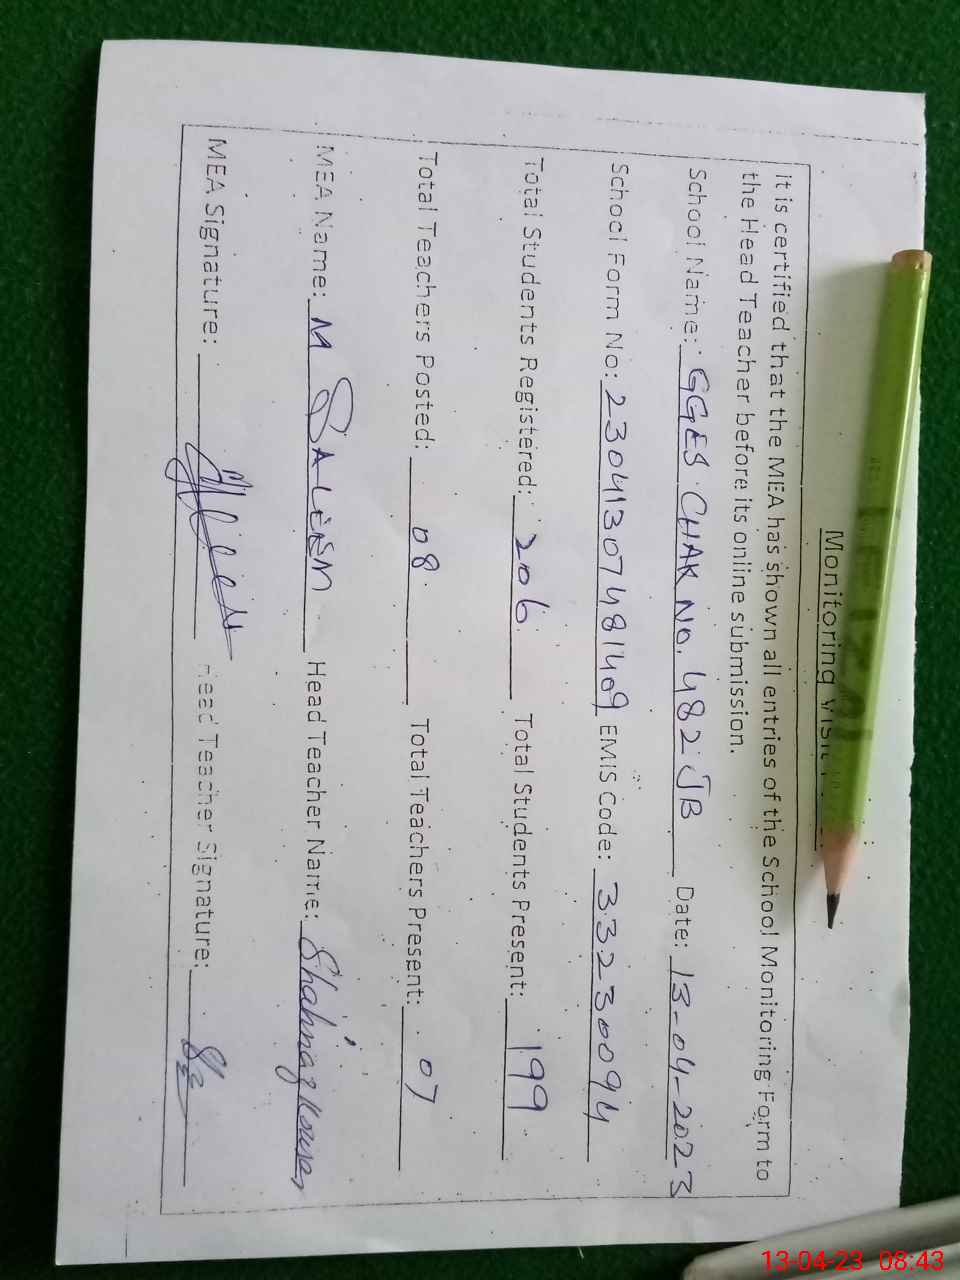 Monitoring Visit
it is certified that the MEA has shown all entries of the School Monitoring Form to
the Head Teacher before its online submission.
School Name: GGES CHAK NO. 482 JB Date: 13-04-2023
School Form No: 23041307481409 EMIS Code: 33230094
Total Students Registered: 206 Total Students Present: 199
Total Teachers Posted: 08 Total Teachers Present: 07
MEA Name: M SALEEM Head Teacher Name: Shahnaz Kouser
MEA Signature: Head Teacher Signature:
13-04-23 08:43